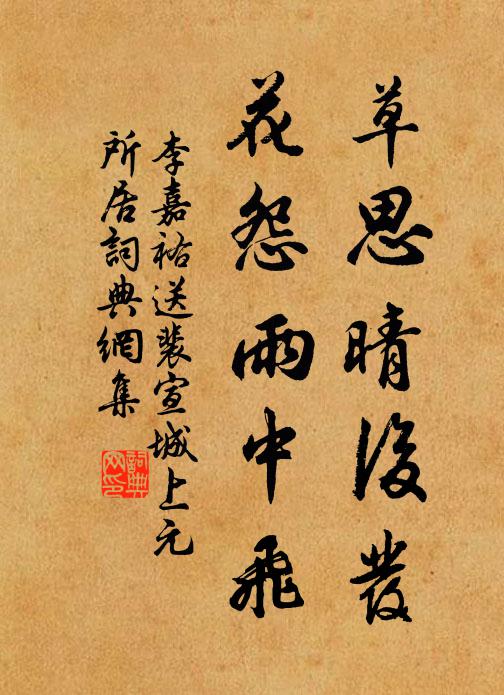 草思晴後發
花怨雨中飛
李嘉祐送裴宣城上元
所居詞典網集
詞典網印